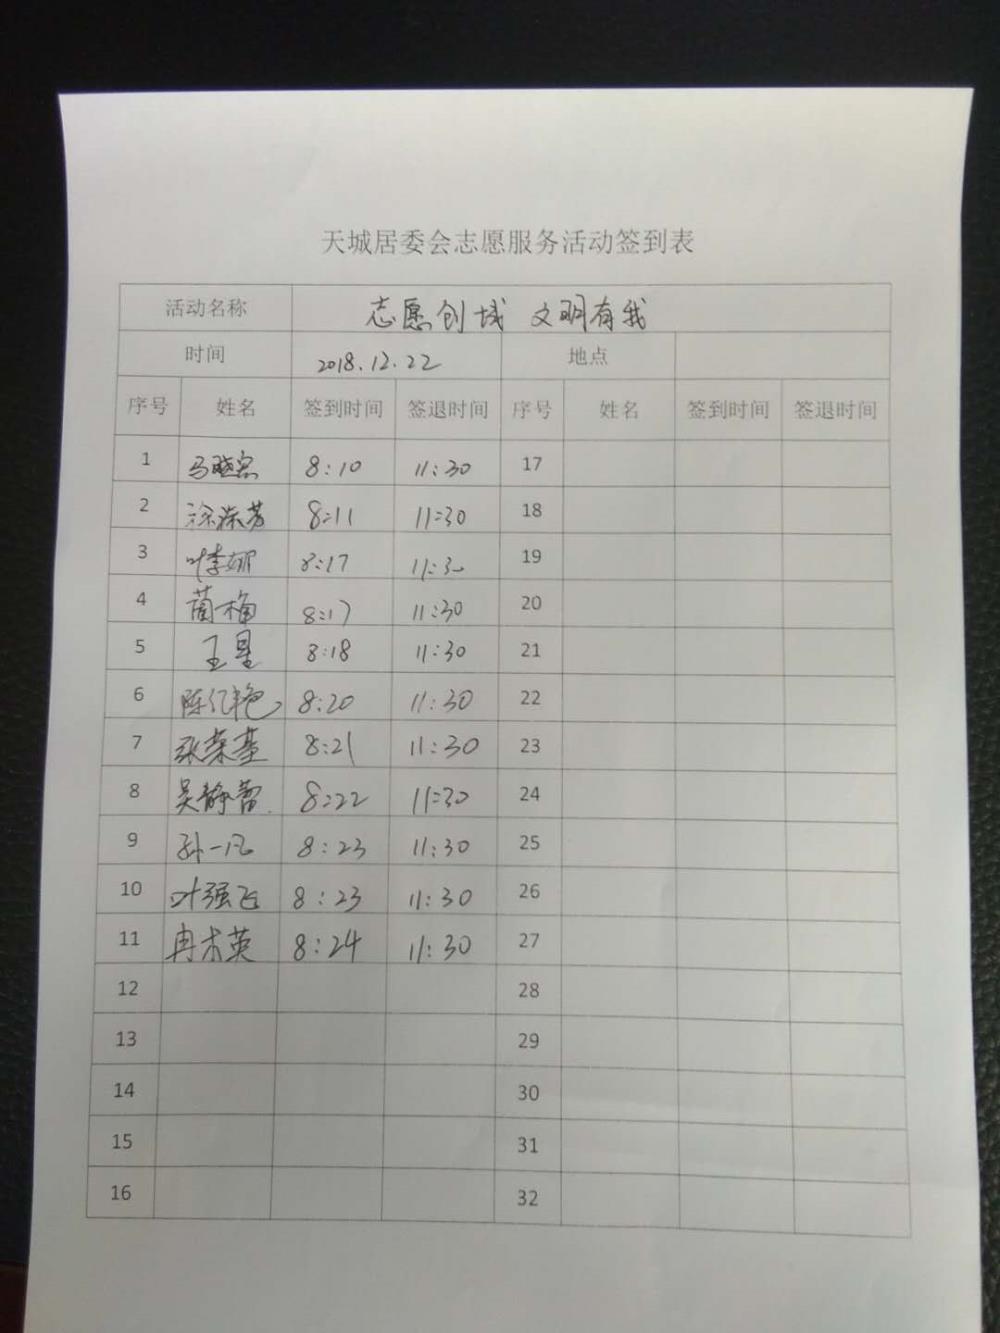 天城居委会志愿服务活动签到表
活动名称 志愿创城 文明有我
时间 2018.12.22 地点
序号 姓名 签到时间 签退时间 序号 姓名 签到时间 签退时间
1 8:10 11:30 17
2 8:11 11:30 18
3 叶李娜 8:17 11:30 19
4 蔺梅 8:17 11:30 20
5 王星 8:18 11:30 21
6 陈亿艳 8:20 11:30 22
7 张荣基 8:21 11:30 23
8 吴静蕾 8:22 11:30 24
9 孙一凡 8:23 11:30 25
10 叶强飞 8:23 11:30 26
11 冉术英 8:24 11:30 27
12 28
13 29
14 30
15 31
16 32